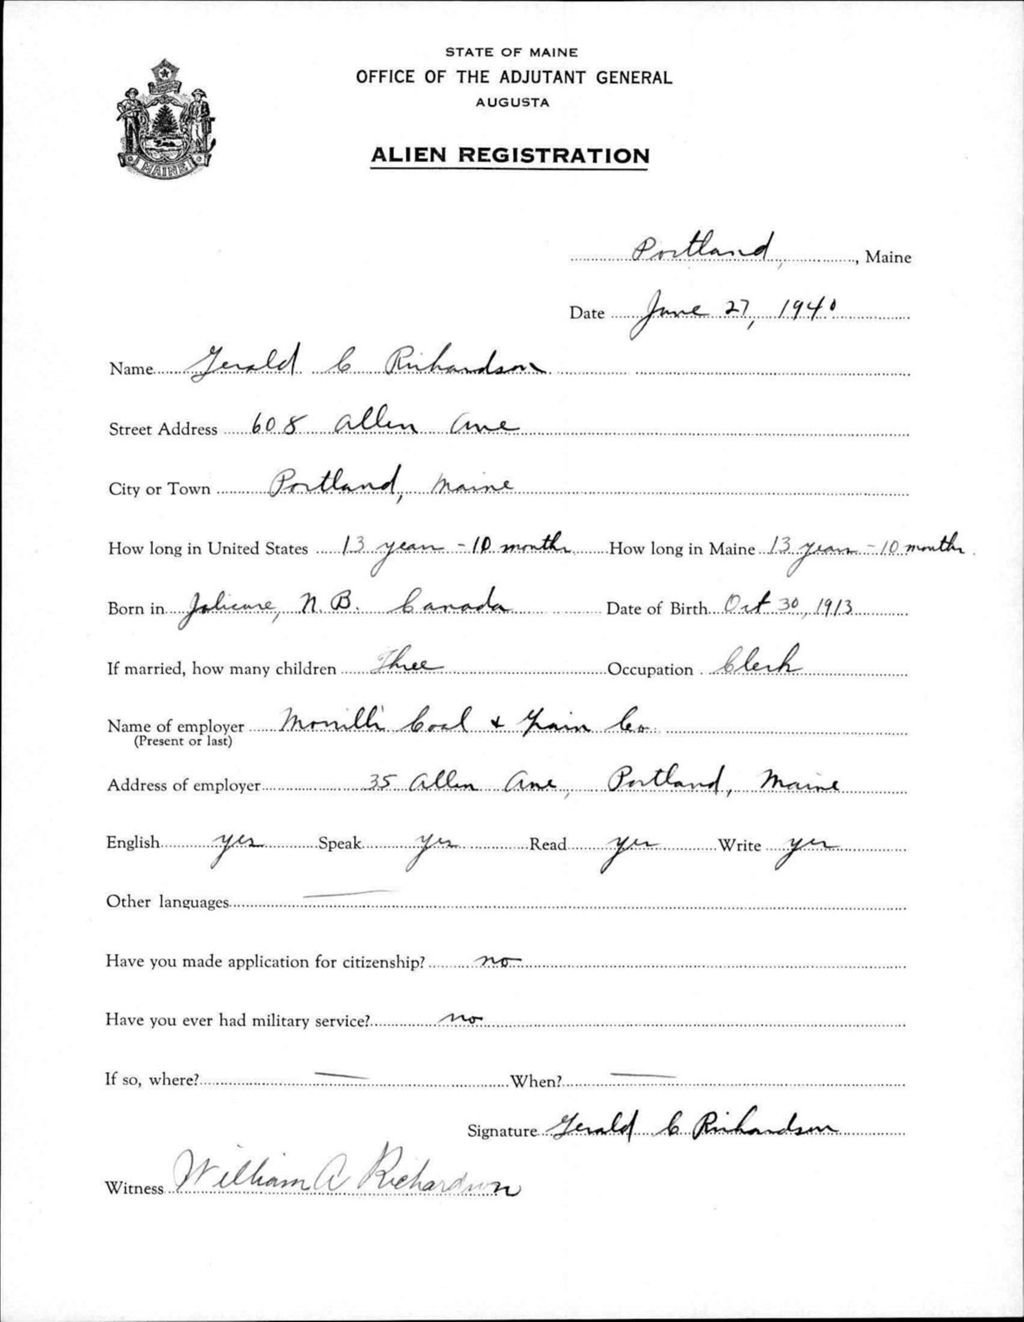 STATE OF MAINE
OFFICE OF THE ADJUTANT GENERAL
AUGUSTA
ALIEN REGISTRATION
MAINE
Portland, Maine
Date June 27, 1940
Name Gerald C Richardson
Street Address 608 Allen Ave
City or Town Portland, Maine
How long in United States 13 years - 10 months How long in Maine 13 years - 10 months
Born in Jolicure, N.B. Canada Date of Birth Oct 30, 1913
If married, how many children Three Occupation Clerk
Name of employer Morrill's Coal & Grain Co.
(Present or last)
Address of employer 35 Allen Ave, Portland, Maine
English yes Speak yes Read yes Write yes
Other languages —
Have you made application for citizenship? no
Have you ever had military service? no
If so, where? — When? —
Signature Gerald C Richardson
Witness William A Richardson